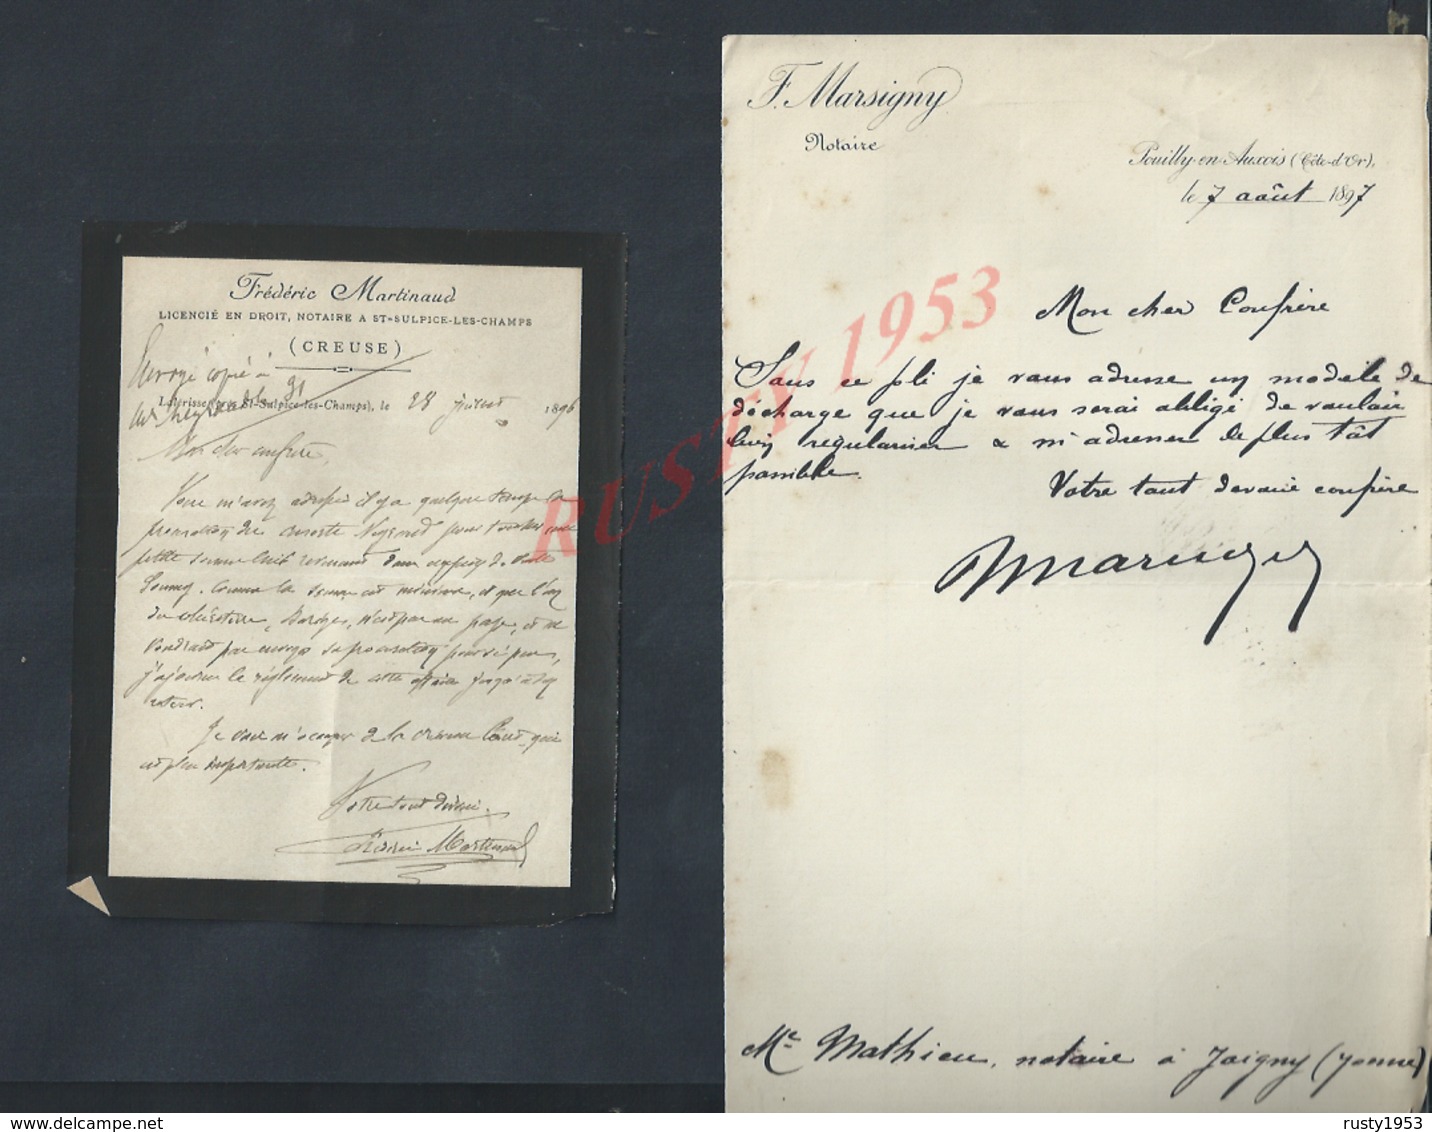 Frédéric Martinaud
LICENCIÉ EN DROIT, NOTAIRE A ST-SULPICE-LES-CHAMPS
(CREUSE)
Envoyé copie à
(près St-Sulpice-les-Champs), le 28 juillet 1896
Mon cher confrère,
Vous m'avez adressé il y a quelque temps la
procuration de pour toucher une
petite somme lui revenant dans
Comme la somme est minime, et que l'un
n'est pas au pays, et ne
voudrait pas envoyer sa procuration pour si peu,
j'ajourne le règlement de cette affaire jusqu'à son
retour.
Je vais m'occuper de la créance qui
est plus importante.
Votre tout dévoué.
Martinaud
F. Marsigny
Notaire
Pouilly-en-Auxois (Côte-d'Or),
le 7 août 1897
Mon cher Confrère
Sous ce pli je vous adresse un modèle de
décharge que je vous serai obligé de vouloir
bien regulariser & m'adresser le plus tôt
possible.
Votre tout dévoué confrère
Marsigny
Me Mathieu, notaire à Joigny (Yonne)
RUSTY 1953
rusty1953